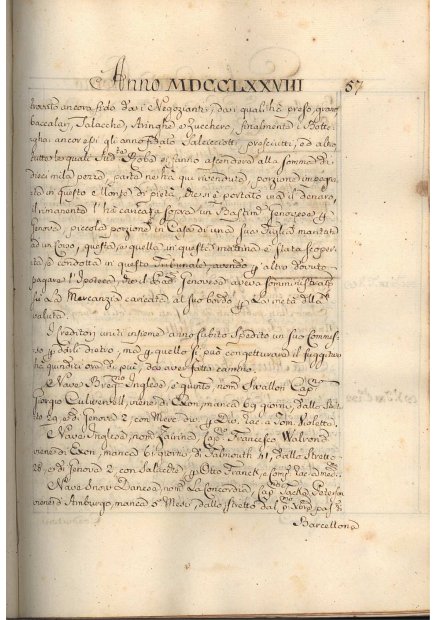 Anno MDCCLXXVIII 57
ancora fido da i Negozianti, da i quali hà preso grano
baccalari, Salacche, Aringhe e Zucchero, finalmente i Botte=
ghai ancor essi gli anno fidato Salcicciotti, prosciutti, ed altro
tutte le quali Robe si fanno ascendere alla somma di
dieci mila pezze, parte ne hà qui rivendute, porzione impegna=
te in questo Monte di pietà, e si è portato via il denaro,
il rimanente l'hà caricata sopra un Bastim.to Genovese p
Genova, piccola porzione in Casa di una sua Figlia maritata
ad un Corso, questa, e quella in questa mattina è stata scoper
ta e condotta in questo Tribunale, avendo p altro dovuto
pagare l'Ipoteca, che il Pad. Genovese aveva somministrato
sù la Mercanzia caricata al suo bordo p la metà della
valuta.
I Creditori uniti insieme anno subito spedito un suo Commis=
so p dietro, ma p quello si può congetturare il fuggitivo
hà quindici ore di più, da aver fatto cammino.
Nave Inglese, e quinto, nom.to Swallon Cap.
Giorgio viene di Exon, manca 69 giorni, dallo Stret=
to 29, e di Genova 2, con Merc. div. p Div. rac. a Tom. Violetta.
Nave Inglese, nom. Cap. Francesco Walrond
viene di Exon, manca 61 giorni, di Falmouth 41, dallo Stretto
28, e di Genova 2, con Salacche p Otto Franck, e Comp. rac. a med.
Nave Snow Danese, nom. La Concordia, Cap. Jacke Peterson
viene d'Amburgo, manca 2 Mesi, dallo stretto dal p. pass.
Barcellona